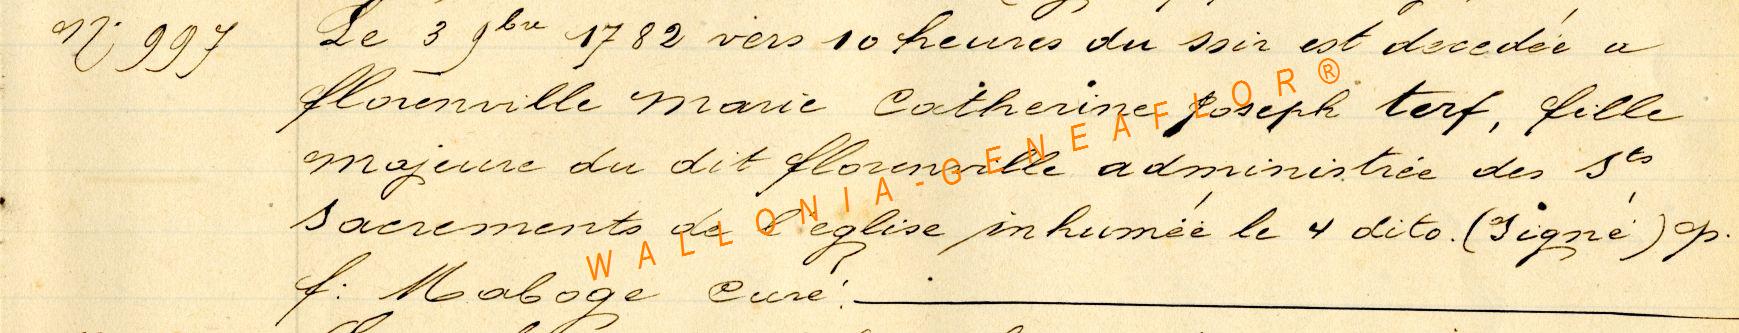 N° 997
Le 3 9bre 1782 vers 10 heures du soir est decedée a
florenville marie Catherine Joseph terf, fille
majeure du dit florenville administrée des Sts
Sacrements de l'eglise inhumée le 4 dito. (Signé) p.
f: Maboge Curé.
WALLONIA-GENEAFLOR®